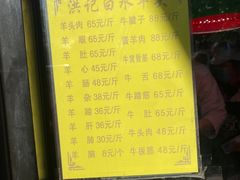 洪记白水羊头
羊头肉 65元/斤 牛腱子 88元/斤
羊 眼 65元/斤 酱羊肉 88元/斤
羊 肚 65元/斤 牛肉 68元/斤
羊 心 45元/斤 牛窝骨筋 68元/斤
羊 肠 48元/斤 牛 舌 68元/斤
羊 杂 38元/斤 牛蹄筋 65元/斤
羊 蹄 36元/斤 牛 肚 65元/斤
羊 肝 36元/斤 牛 心 48元/斤
羊 肺 30元/斤 牛头肉 48元/斤
羊 脑 8元/个 牛板筋 48元/斤